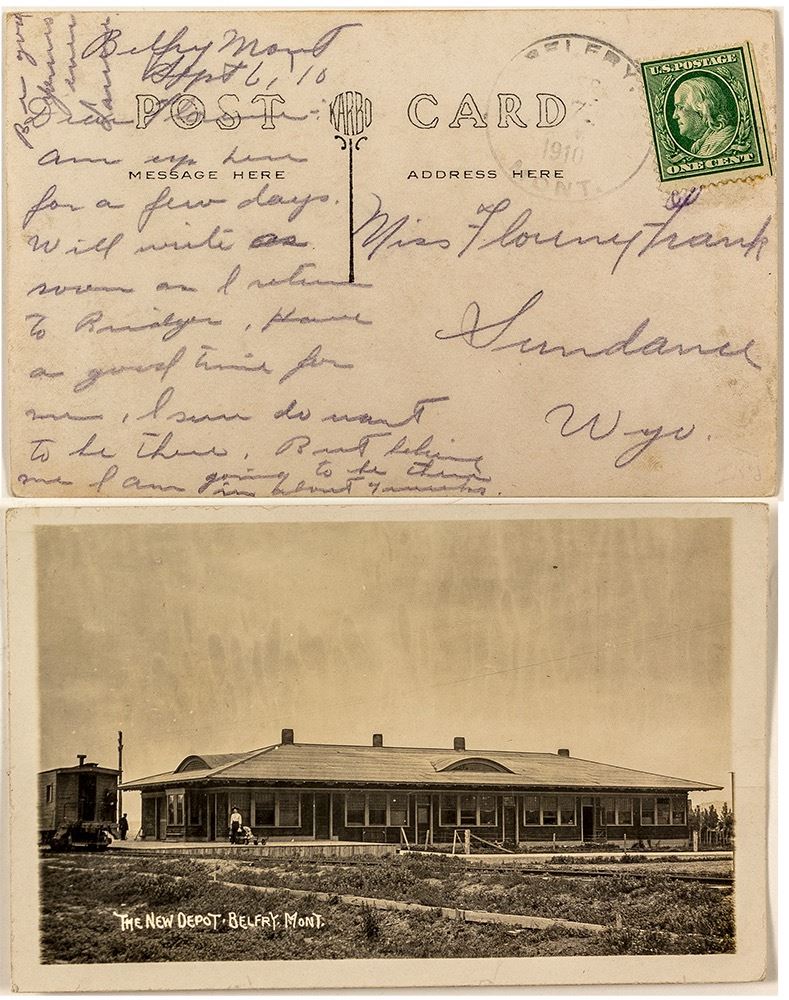 Belfry Mont
Sept 6, 10
POST KARBO CARD
MESSAGE HERE
ADDRESS HERE
BELFRY
1910
MONT.
U.S. POSTAGE
ONE CENT
Dear
am up here
for a few days.
Will write as
soon as I return
to Bridger, Have
a good time for
me, I sure do want
to be there. But believe
me I am going to be there
in about weeks.
Miss Florence Frank
Sundance
Wyo.
THE NEW DEPOT · BELFRY, MONT.